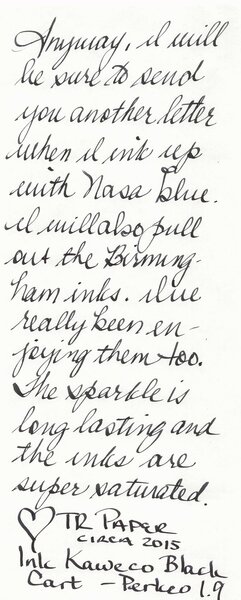 Anyway, I will
be sure to send
you another letter
when I ink up
with Nasa Blue.
I will also pull
out the Birming-
ham inks. I've
really been en-
joying them too.
The sparkle is
long lasting and
the inks are
super saturated.
♡ TR PAPER
CIRCA 2015
Ink Kaweco Black
Cart - Perkeo 1.9